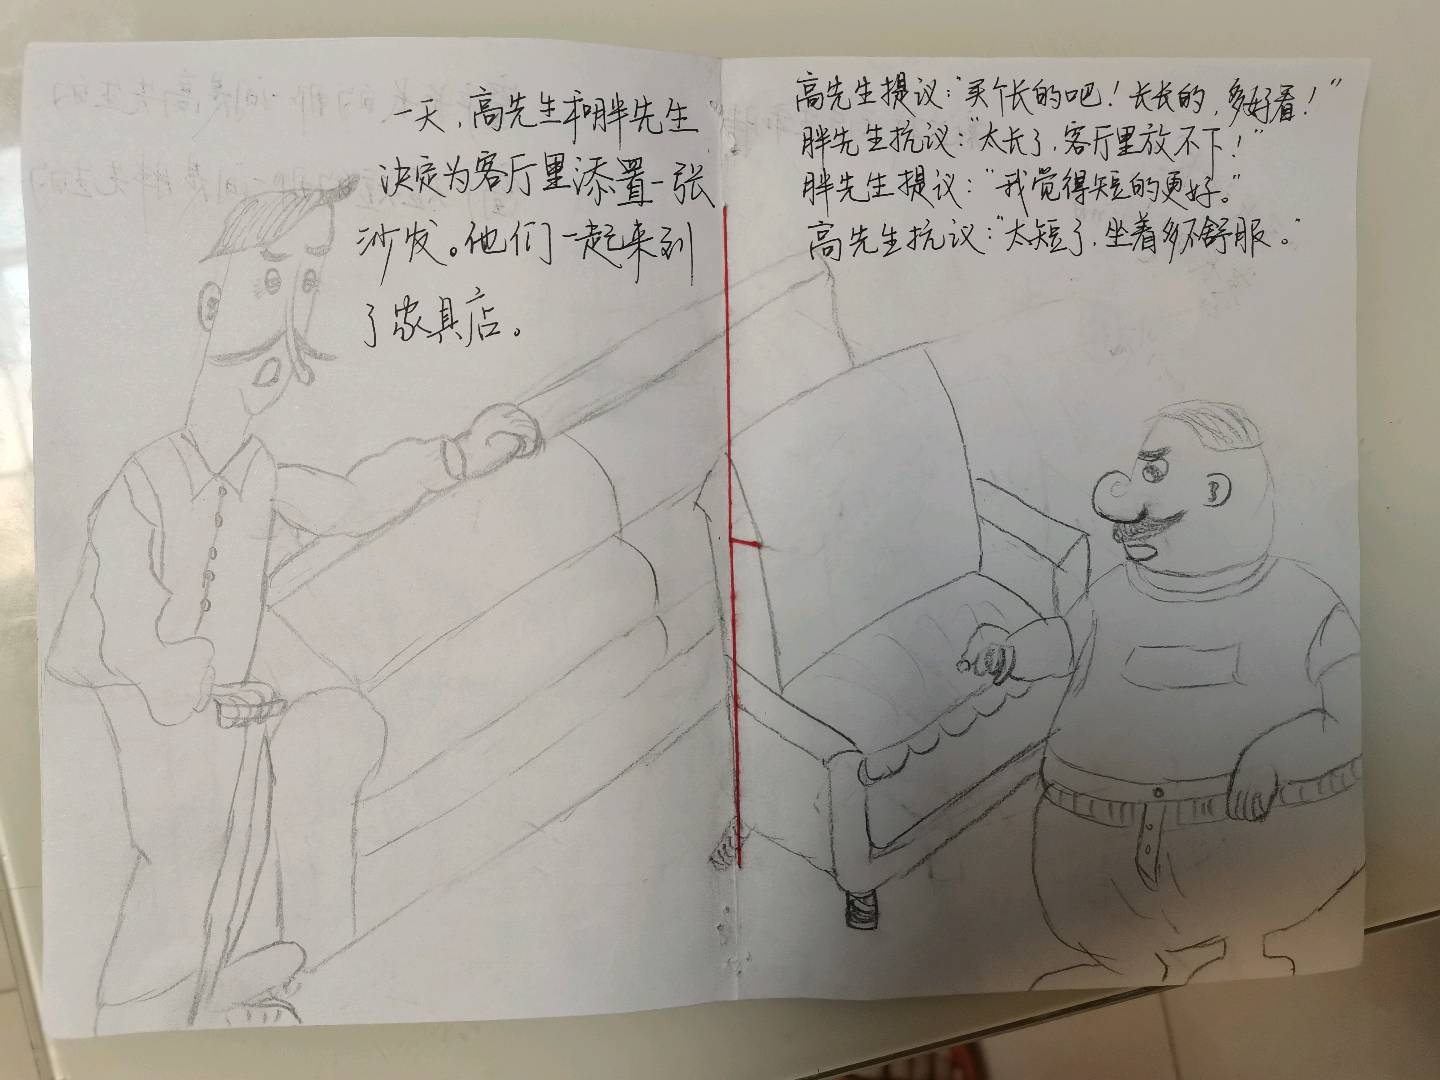 一天，高先生和胖先生
决定为客厅里添置一张
沙发。他们一起来到
了家具店。
高先生提议：“买个长的吧！长长的，多好看！”
胖先生抗议：“太长了，客厅里放不下！”
胖先生提议：“我觉得短的更好。”
高先生抗议：“太短了，坐着多不舒服。”